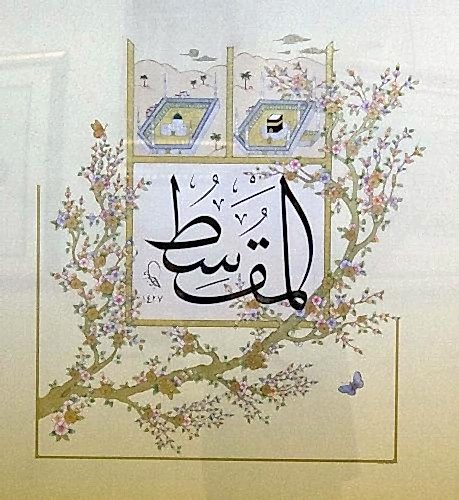 المقسط
١٤٢٧